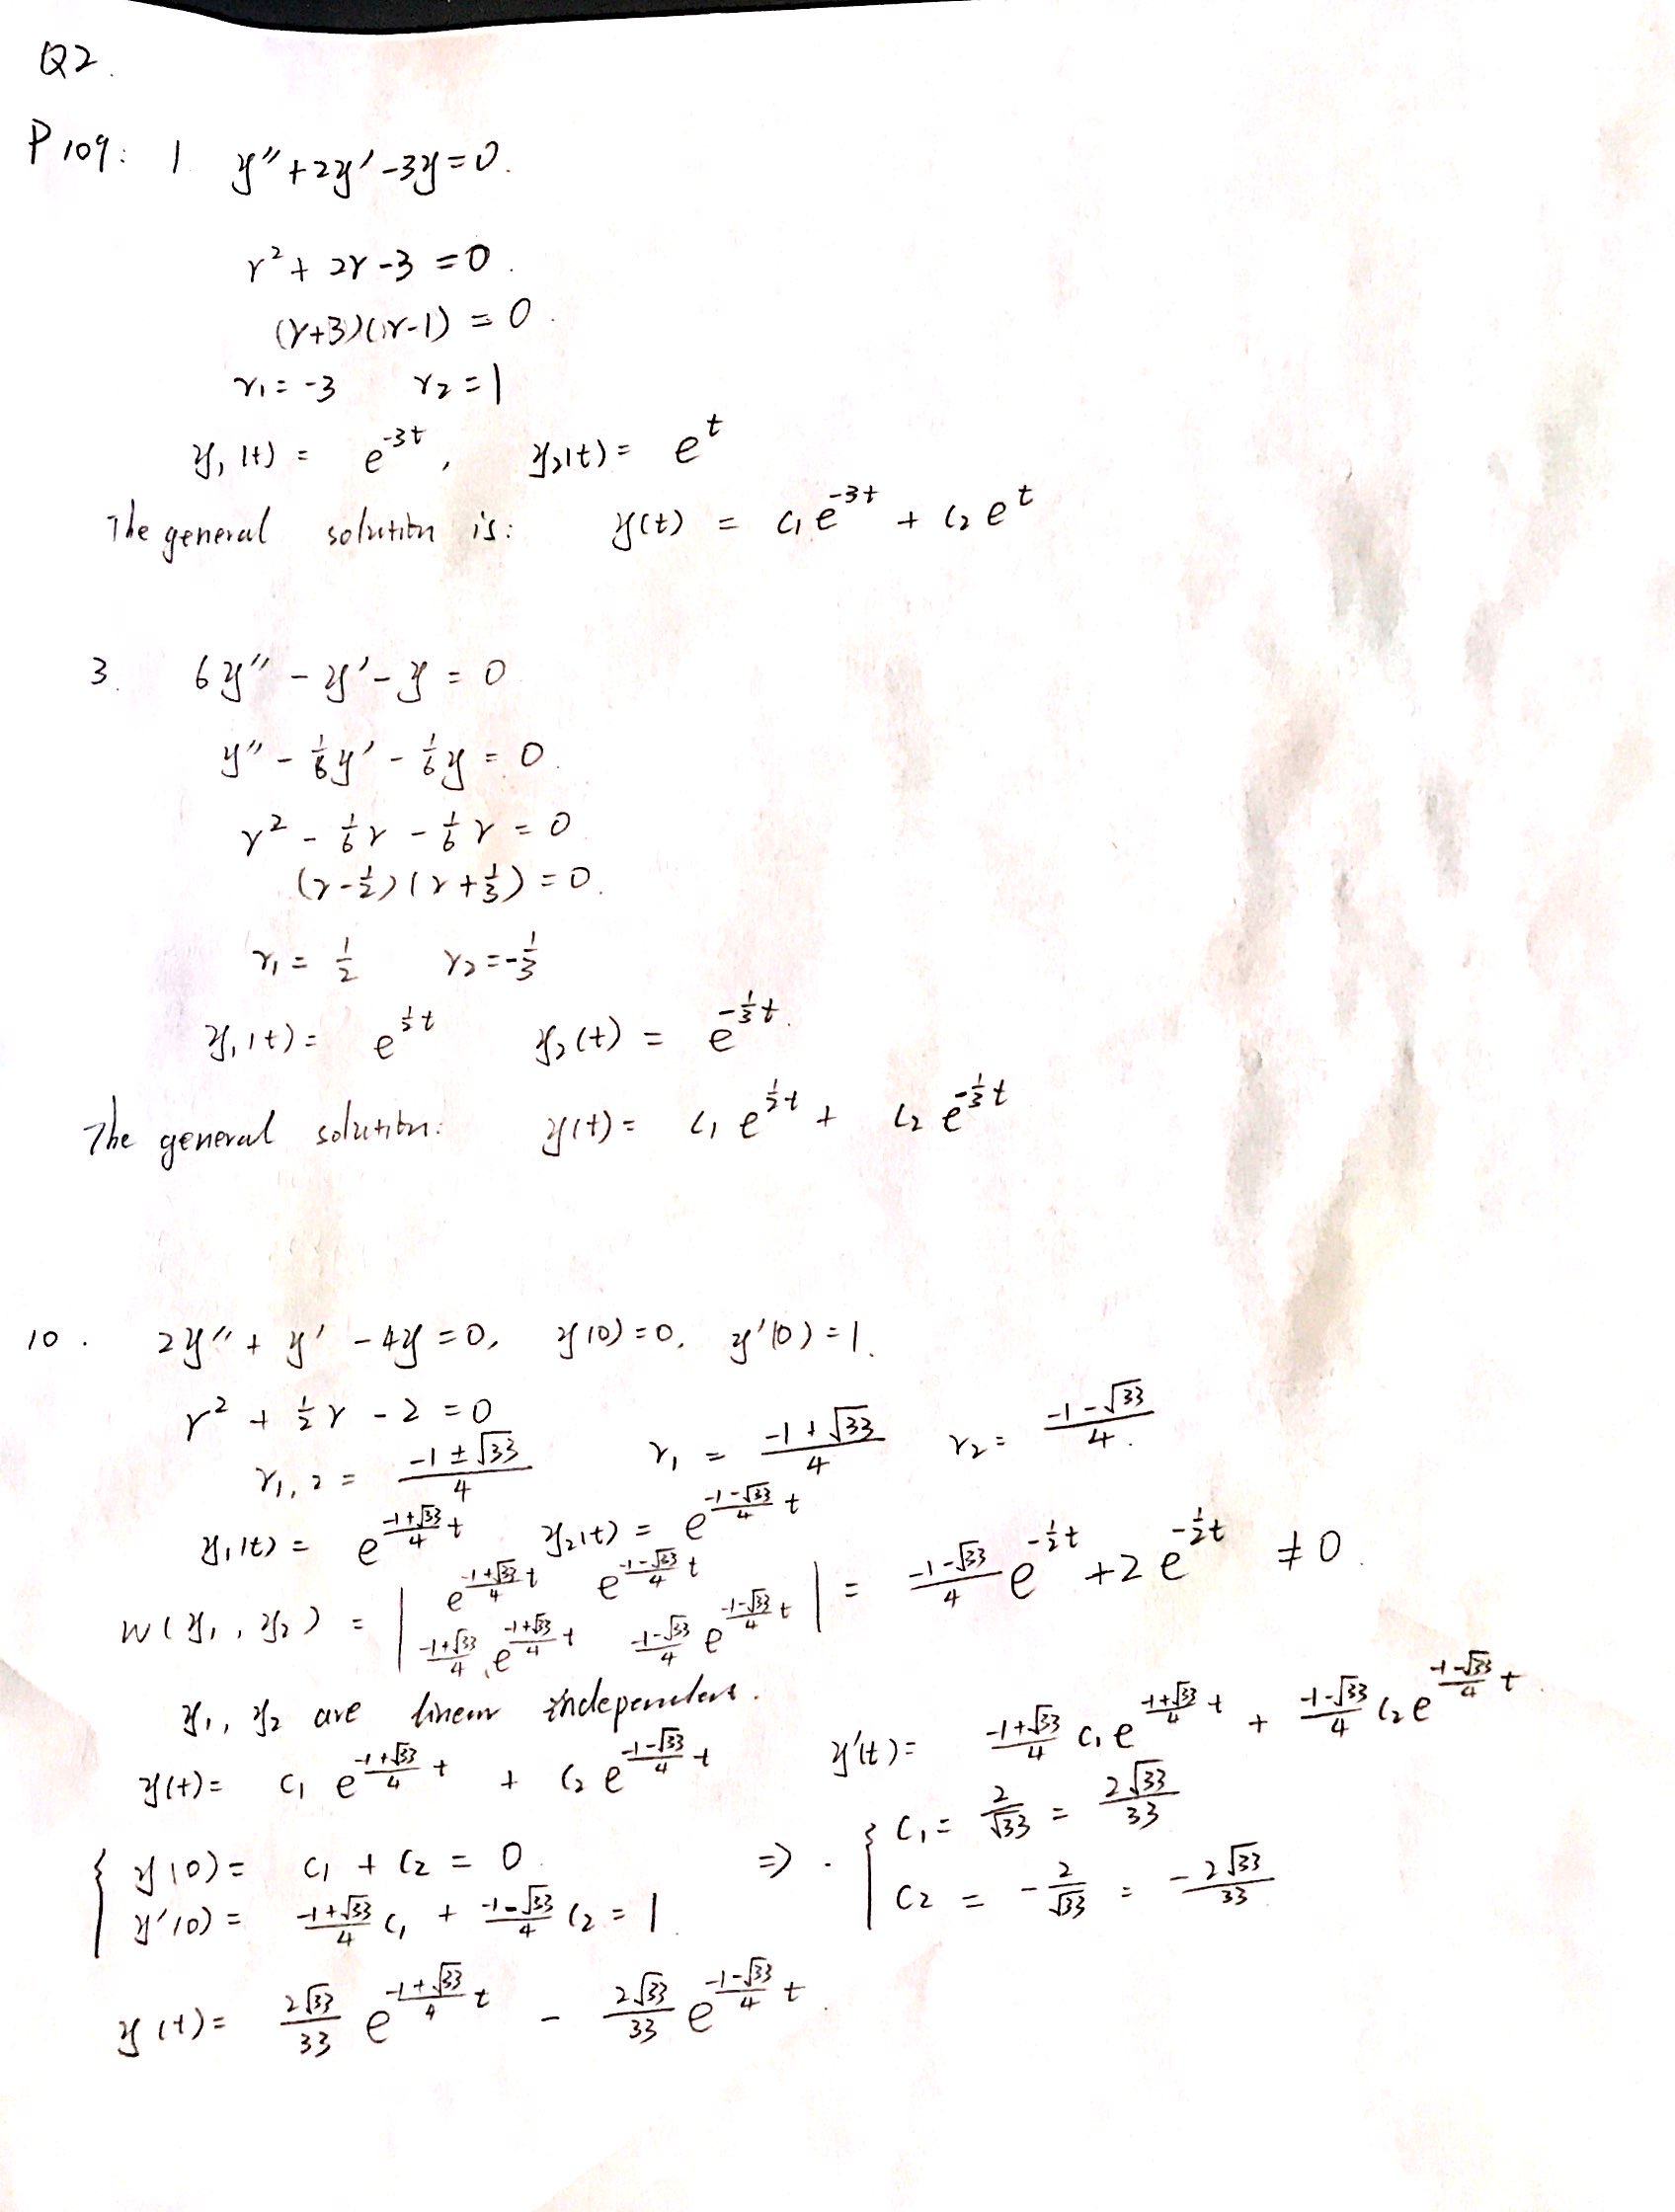 Q2.
P109: 1 y″+2y′-3y=0.
r²+2r-3=0.
(r+3)(r-1)=0.
r₁=-3 r₂=1
y₁(t)= e^{-3t}, y₂(t)= e^{t}
The general solution is: y(t) = c₁e^{-3t} + c₂e^{t}
3. 6y″-y′-y=0
y″-\frac{1}{6}y′-\frac{1}{6}y=0.
r²-\frac{1}{6}r-\frac{1}{6}r=0
(r-\frac{1}{2})(r+\frac{1}{3})=0.
r₁=\frac{1}{2} r₂=-\frac{1}{3}
y₁(t)= e^{\frac{1}{2}t} y₂(t)= e^{-\frac{1}{3}t}.
The general solution: y(t)= c₁e^{\frac{1}{2}t}+ c₂e^{-\frac{1}{3}t}
10. 2y″+y′-4y=0, y(0)=0, y′(0)=1.
r²+\frac{1}{2}r-2=0
r₁,₂=\frac{-1±\sqrt{33}}{4} r₁=\frac{-1+\sqrt{33}}{4} r₂=\frac{-1-\sqrt{33}}{4}.
y₁(t)= e^{\frac{-1+\sqrt{33}}{4}t} y₂(t)= e^{\frac{-1-\sqrt{33}}{4}t}
W(y₁,y₂)= | e^{\frac{-1+\sqrt{33}}{4}t} e^{\frac{-1-\sqrt{33}}{4}t} ; \frac{-1+\sqrt{33}}{4}e^{\frac{-1+\sqrt{33}}{4}t} \frac{-1-\sqrt{33}}{4}e^{\frac{-1-\sqrt{33}}{4}t} | = \frac{-1-\sqrt{33}}{4}e^{-\frac{1}{2}t}+2e^{-\frac{1}{2}t} ≠0.
y₁, y₂ are linear independent.
y(t)= c₁e^{\frac{-1+\sqrt{33}}{4}t} + c₂e^{\frac{-1-\sqrt{33}}{4}t} y′(t)= \frac{-1+\sqrt{33}}{4}c₁e^{\frac{-1+\sqrt{33}}{4}t} + \frac{-1-\sqrt{33}}{4}c₂e^{\frac{-1-\sqrt{33}}{4}t}.
{ y(0)= c₁+c₂=0. ⇒ { c₁=\frac{2}{\sqrt{33}}=\frac{2\sqrt{33}}{33}
y′(0)= \frac{-1+\sqrt{33}}{4}c₁+\frac{-1-\sqrt{33}}{4}c₂=1. c₂=-\frac{2}{\sqrt{33}}=\frac{-2\sqrt{33}}{33}
y(t)= \frac{2\sqrt{33}}{33}e^{\frac{-1+\sqrt{33}}{4}t} - \frac{2\sqrt{33}}{33}e^{\frac{-1-\sqrt{33}}{4}t}.